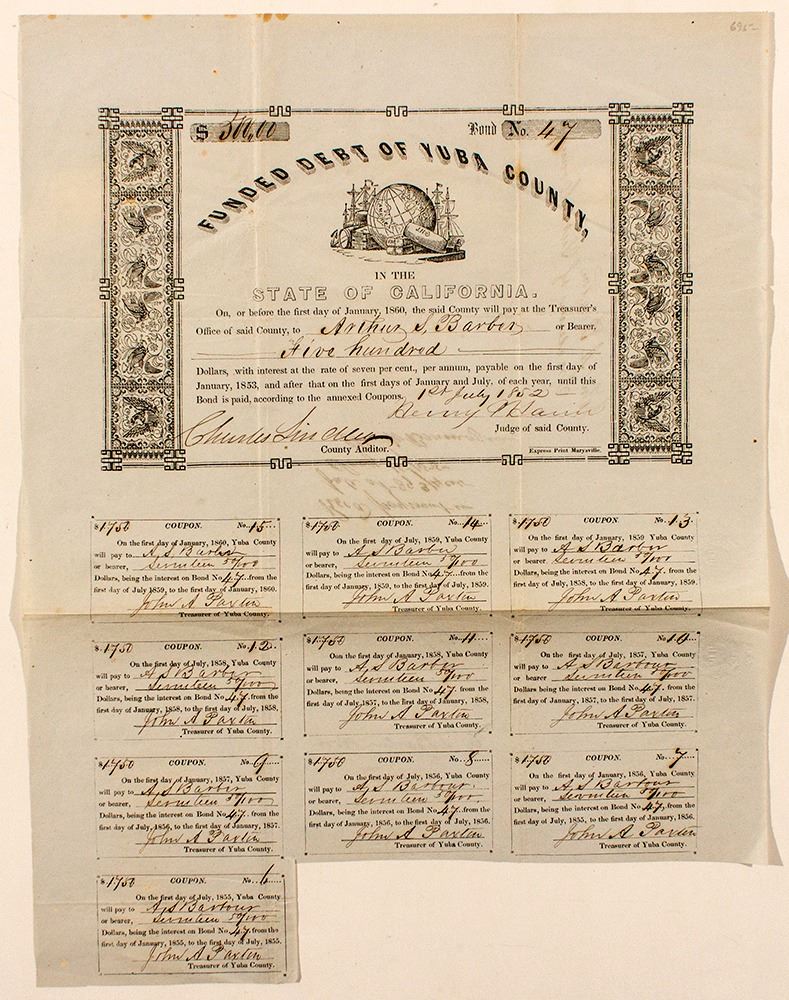 695-
$ 500,00 Bond No. 47
FUNDED DEBT OF YUBA COUNTY,
IN THE
STATE OF CALIFORNIA.
On, or before the first day of January, 1860, the said County will pay at the Treasurer's
Office of said County, to Arthur S. Barber or Bearer,
Five hundred
Dollars, with interest at the rate of seven per cent., per annum, payable on the first day of
January, 1853, and after that on the first days of January and July, of each year, until this
Bond is paid, according to the annexed Coupons. 1st July 1852
Henry
Judge of said County.
Charles Lindley
County Auditor.
Express Print Marysville.
$ 17 50 COUPON. No. 15
On the first day of January, 1860, Yuba County
will pay to A. S Barber
or bearer, Seventeen 50/100
Dollars, being the interest on Bond No 47 from the
first day of July 1859, to the first day of January, 1860.
John A Paxton
Treasurer of Yuba County.
$ 17 50 COUPON. No. 14
Oon the first day of July, 1859, Yuba County
will pay to A. S Barber
or bearer, Seventeen 50/100
Dollars, being the interest on Bond No 47 from the
first day of January, 1859, to the first day of July, 1859.
John A Paxton
Treasurer of Yuba County.
$ 17 50 COUPON. No. 13
On the first day of January, 1859 Yuba County
will pay to A S Barber
or bearer, Seventeen 50/100
Dollars, being the interest on Bond No 47 from the
first day of July, 1858, to the first day of January, 1859.
John A Paxton
Treasurer of Yuba County.
$ 17 50 COUPON. No. 12
On the first day of July, 1858, Yuba County
will pay to A, S Barber
or bearer, Seventeen 50/100
Dollars, being the interest on Bond No 47 from the
first day of January, 1858, to the first day of July, 1858.
John A Paxton
Treasurer of Yuba County.
$ 17 50 COUPON. No. 11
Oon the first day of January, 1858, Yuba County
will pay to A S Barber
or bearer, Seventeen 50/100
Dollars, being the interest on Bond No 47 from the
first day of July, 1857, to the first day of January, 1858,
John A Paxton
Treasurer of Yuba County,
$ 17 50 COUPON. No. 10
Oon the first day of July, 1857, Yuba County
will pay to A. S Barbour
or bearer, Seventeen 50/100
Dollars, being the interest on Bond No 47 from the
first day of January, 1857, to the first day of July, 1857.
John A Paxton
Treasurer of Yuba County.
$ 17 50 COUPON. No. 9
On the first day of January, 1857, Yuba County
will pay to A. S Barber
or bearer, Seventeen 50/100
Dollars, being the interest on Bond No 47 from the
first day of July, 1856, to the first day of January, 1857.
John A Paxton
Treasurer of Yuba County.
$ 17 50 COUPON. No. 8
On the first day of July, 1856, Yuba County
will pay to A. S Barbour
or bearer, Seventeen 50/100
Dollars, being the interest on Bond No 47 from the
first day of January, 1856, to the first day of July, 1856.
John A Paxton
Treasurer of Yuba County.
$ 17 50 COUPON. No. 7
On the first day of January, 1856, Yuba County
will pay to A. S Barbour
or bearer, Seventeen 50/100
Dollars, being the interest on Bond No 47 from the
first day of July, 1855, to the first day of January, 1856.
John A Paxton
Treasurer of Yuba County.
$ 17 50 COUPON. No. 6
On the first day of July, 1855, Yuba County
will pay to A, S Barbour
or bearer, Seventeen 50/100
Dollars, being the interest on Bond No 47 from the
first day of January, 1855, to the first day of July, 1855.
John A Paxton
Treasurer of Yuba County.